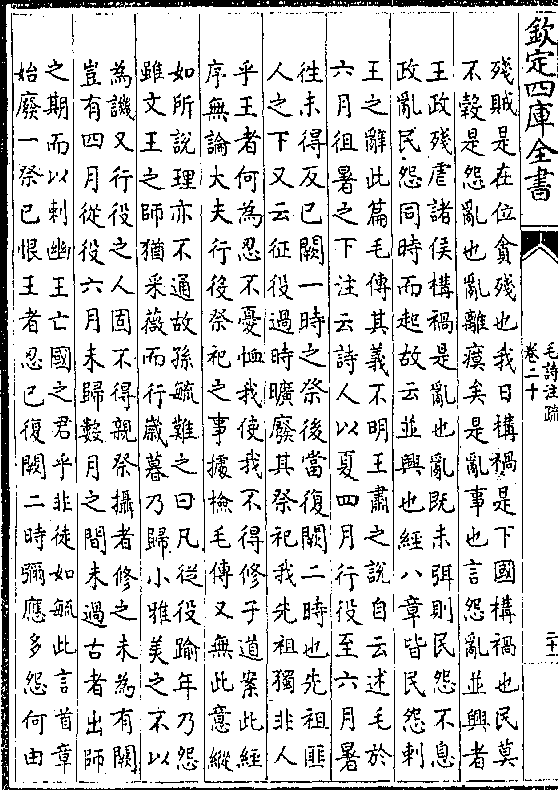 欽定四庫全書
毛詩注疏
卷二十
二十
殘賊是在位貪殘也我日構禍是下國構禍也民莫
不穀是怨亂也亂離瘼矣是亂事也言怨亂並興者
王政殘虐諸侯構禍是亂也亂既未弭則民怨不息
政亂民怨同時而起故云並興也經八章皆民怨刺
王之辭此篇毛傳其義不明王肅之說自云述毛於
六月徂暑之下注云詩人以夏四月行役至六月暑
徃未得反已闕一時之祭後當復闕二時也先祖匪
人之下又云征役過時曠廢其祭祀我先祖獨非人
乎王者何為忍不憂恤我使我不得修子道案此經
序無論大夫行役祭祀之事據檢毛傳又無此意縱
如所說理亦不通故孫毓難之曰凡從役踰年乃怨
雖文王之師猶采薇而行歲暮乃歸小雅美之不以
為譏又行役之人固不得親祭攝者修之未為有闕
豈有四月從役六月未歸數月之間未過古者出師
之期而以刺幽王亡國之君乎非徒如毓此言首章
始廢一祭已恨王者忍已復闕二時彌應多怨何由